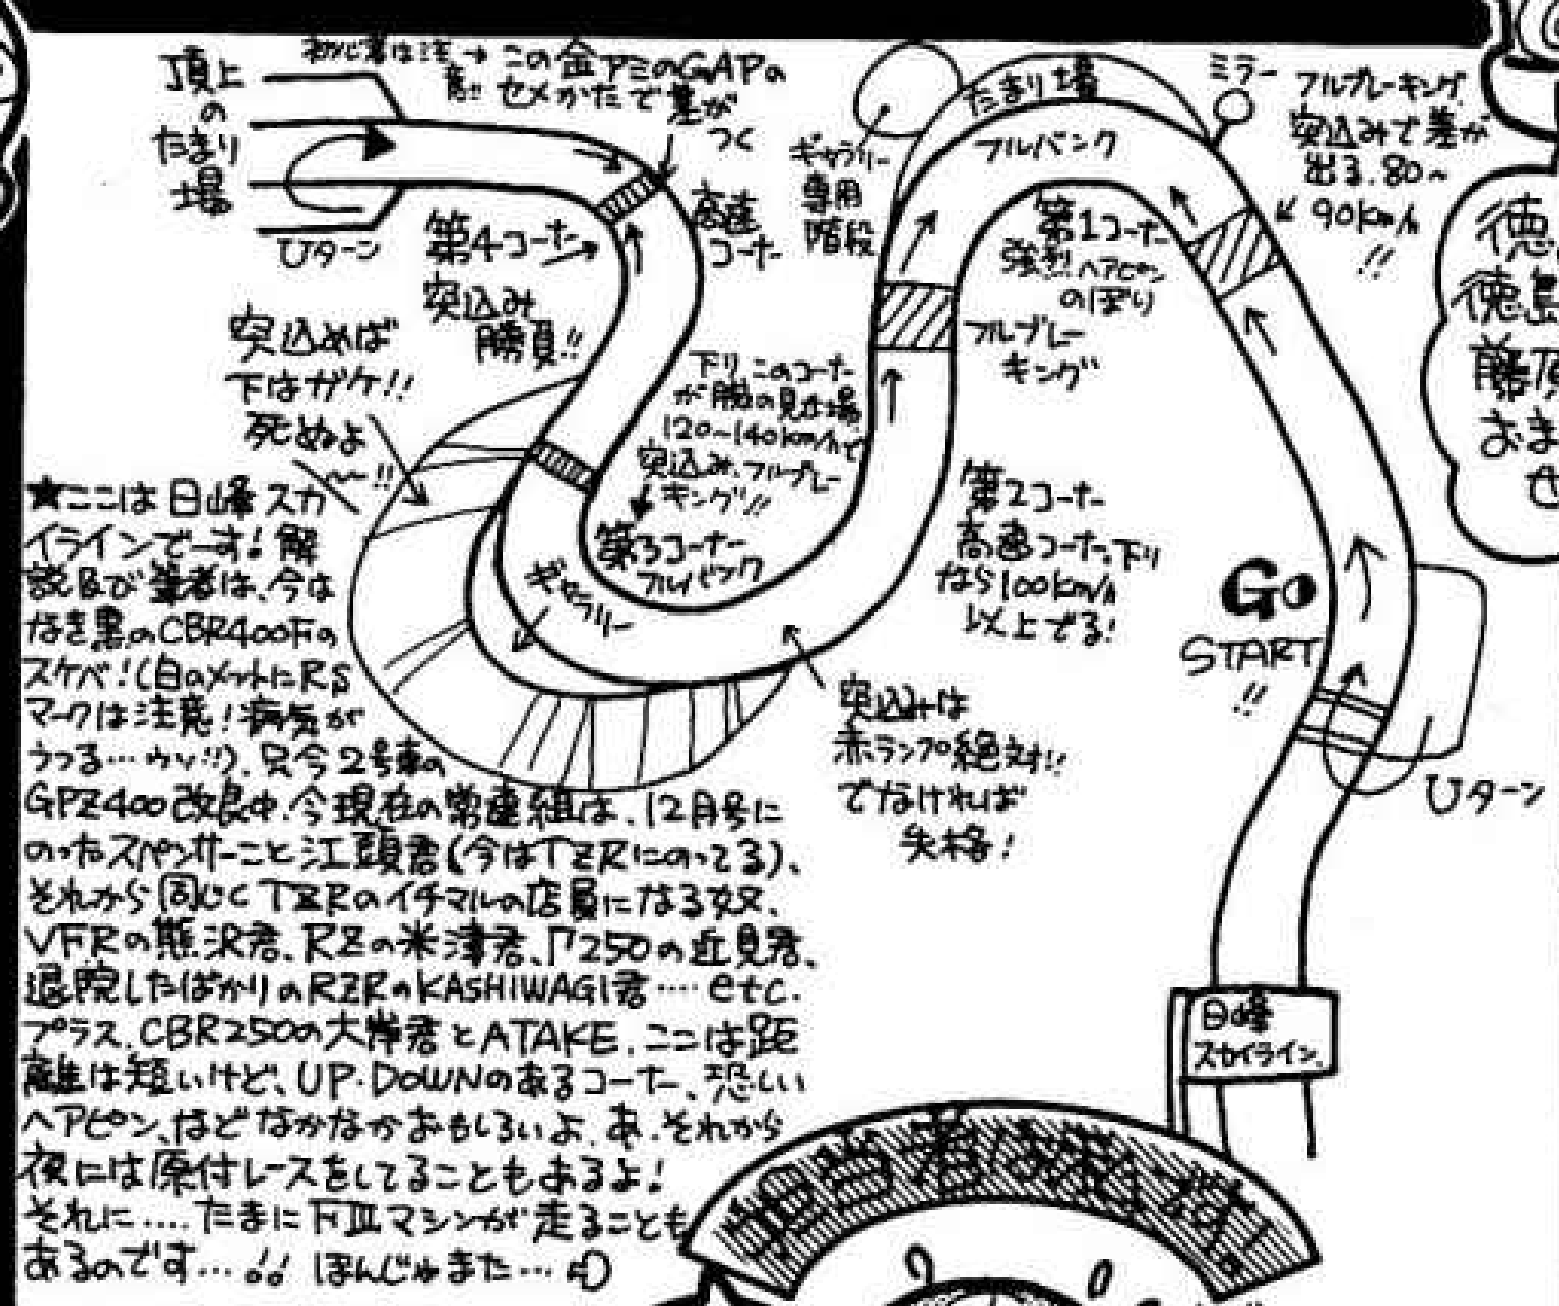 頂上
の
たまり
場
初心者は注→この金アミのGAPの
意!! セメかたで差が
つく
Uターン
第4コーナー
突込み
勝負!!
高速
コーナー
突込めば
下はガケ!!
死ぬよ
〜〜!!
ギャラリー
専用
階段
たまり場
フルバンク
ミラー
フルブレーキング.
突込みで差が
出る.80〜
90km/h
!!
第1コーナー
強烈!ヘアピン
のぼり
フルブレー
キング
下り このコーナー
が勝負の見せ場
120〜140km/hで
突込み、フルブレー
キング!!
第3コーナー
フルバンク
ギャラリー
第2コーナー
高速コーナー、下り
なら100km/h
以上でる!
突込みは
赤ランプ絶対!!
でなければ
失格!
GO
START
!!
Uターン
日峰
スカイライン.
★ここは日峰スカ
イラインでーす!解
説及び筆者は、今は
なき黒のCBR400Fの
スケベ!(白のメットにRS
マークは注意!病気が
うつる…ウッ!!)、只今2号車の
GPZ400改良中.今現在の常連組は、12月号に
のったスペンサーこと江頭君(今はTZRにのってる)、
それから同じくTZRのイチマルの店員になる奴、
VFRの熊沢君、RZの米津君、Γ250の近見君、
退院したばかりのRZRのKASHIWAGI君…‥etc.
プラス、CBR250の大岸君とATAKE.ここは距
離は短いけど、UP・DOWNのあるコーナー、恐しい
ヘアピン、などなかなかおもしろいよ.あ.それから
夜には原付レースをしてることもあるよ!
それに…‥たまにFⅢマシンが走ることも
あるのです…!! ほんじゃまた…
徳
徳島
勝
おま
せ
担当者の